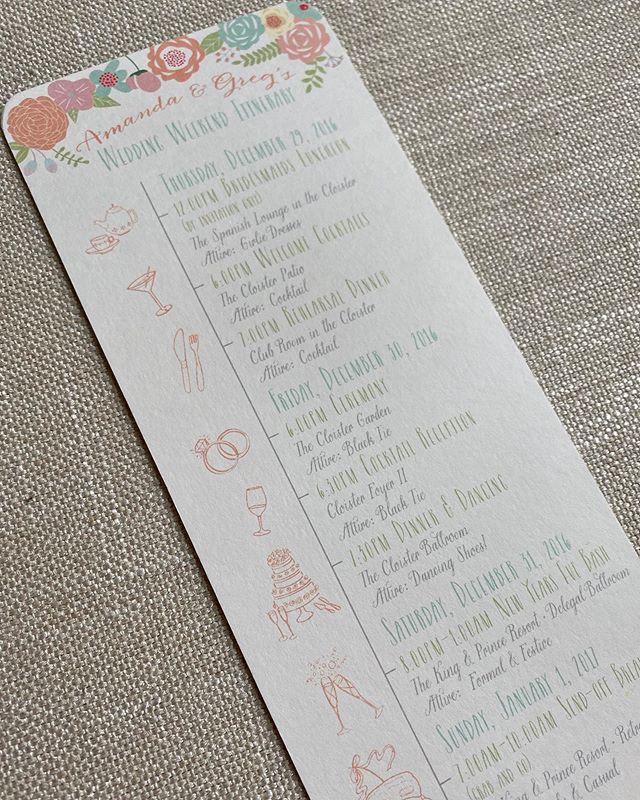 Amanda & Greg's
Wedding Weekend Itinerary
Thursday, December 29, 2016
12:00pm Bridesmaids Luncheon
(by invitation only)
The Spanish Lounge in the Cloister
Attire: Girlie Dresses
6:00pm Welcome Cocktails
The Cloister Patio
Attire: Cocktail
7:00pm Rehearsal Dinner
Club Room in the Cloister
Attire: Cocktail
Friday, December 30, 2016
6:00pm Ceremony
The Cloister Garden
Attire: Black Tie
6:30pm Cocktail Reception
Cloister Foyer II
Attire: Black Tie
7:30pm Dinner & Dancing
The Cloister Ballroom
Attire: Dancing Shoes!
Saturday, December 31, 2016
8:00pm-1:00am New Years Eve Bash
The King & Prince Resort · Delegal Ballroom
Attire: Formal & Festive
Sunday, January 1, 2017
7:00am-10:00am Send-Off
(Grab and Go)
King & Prince Resort ·
& Casual